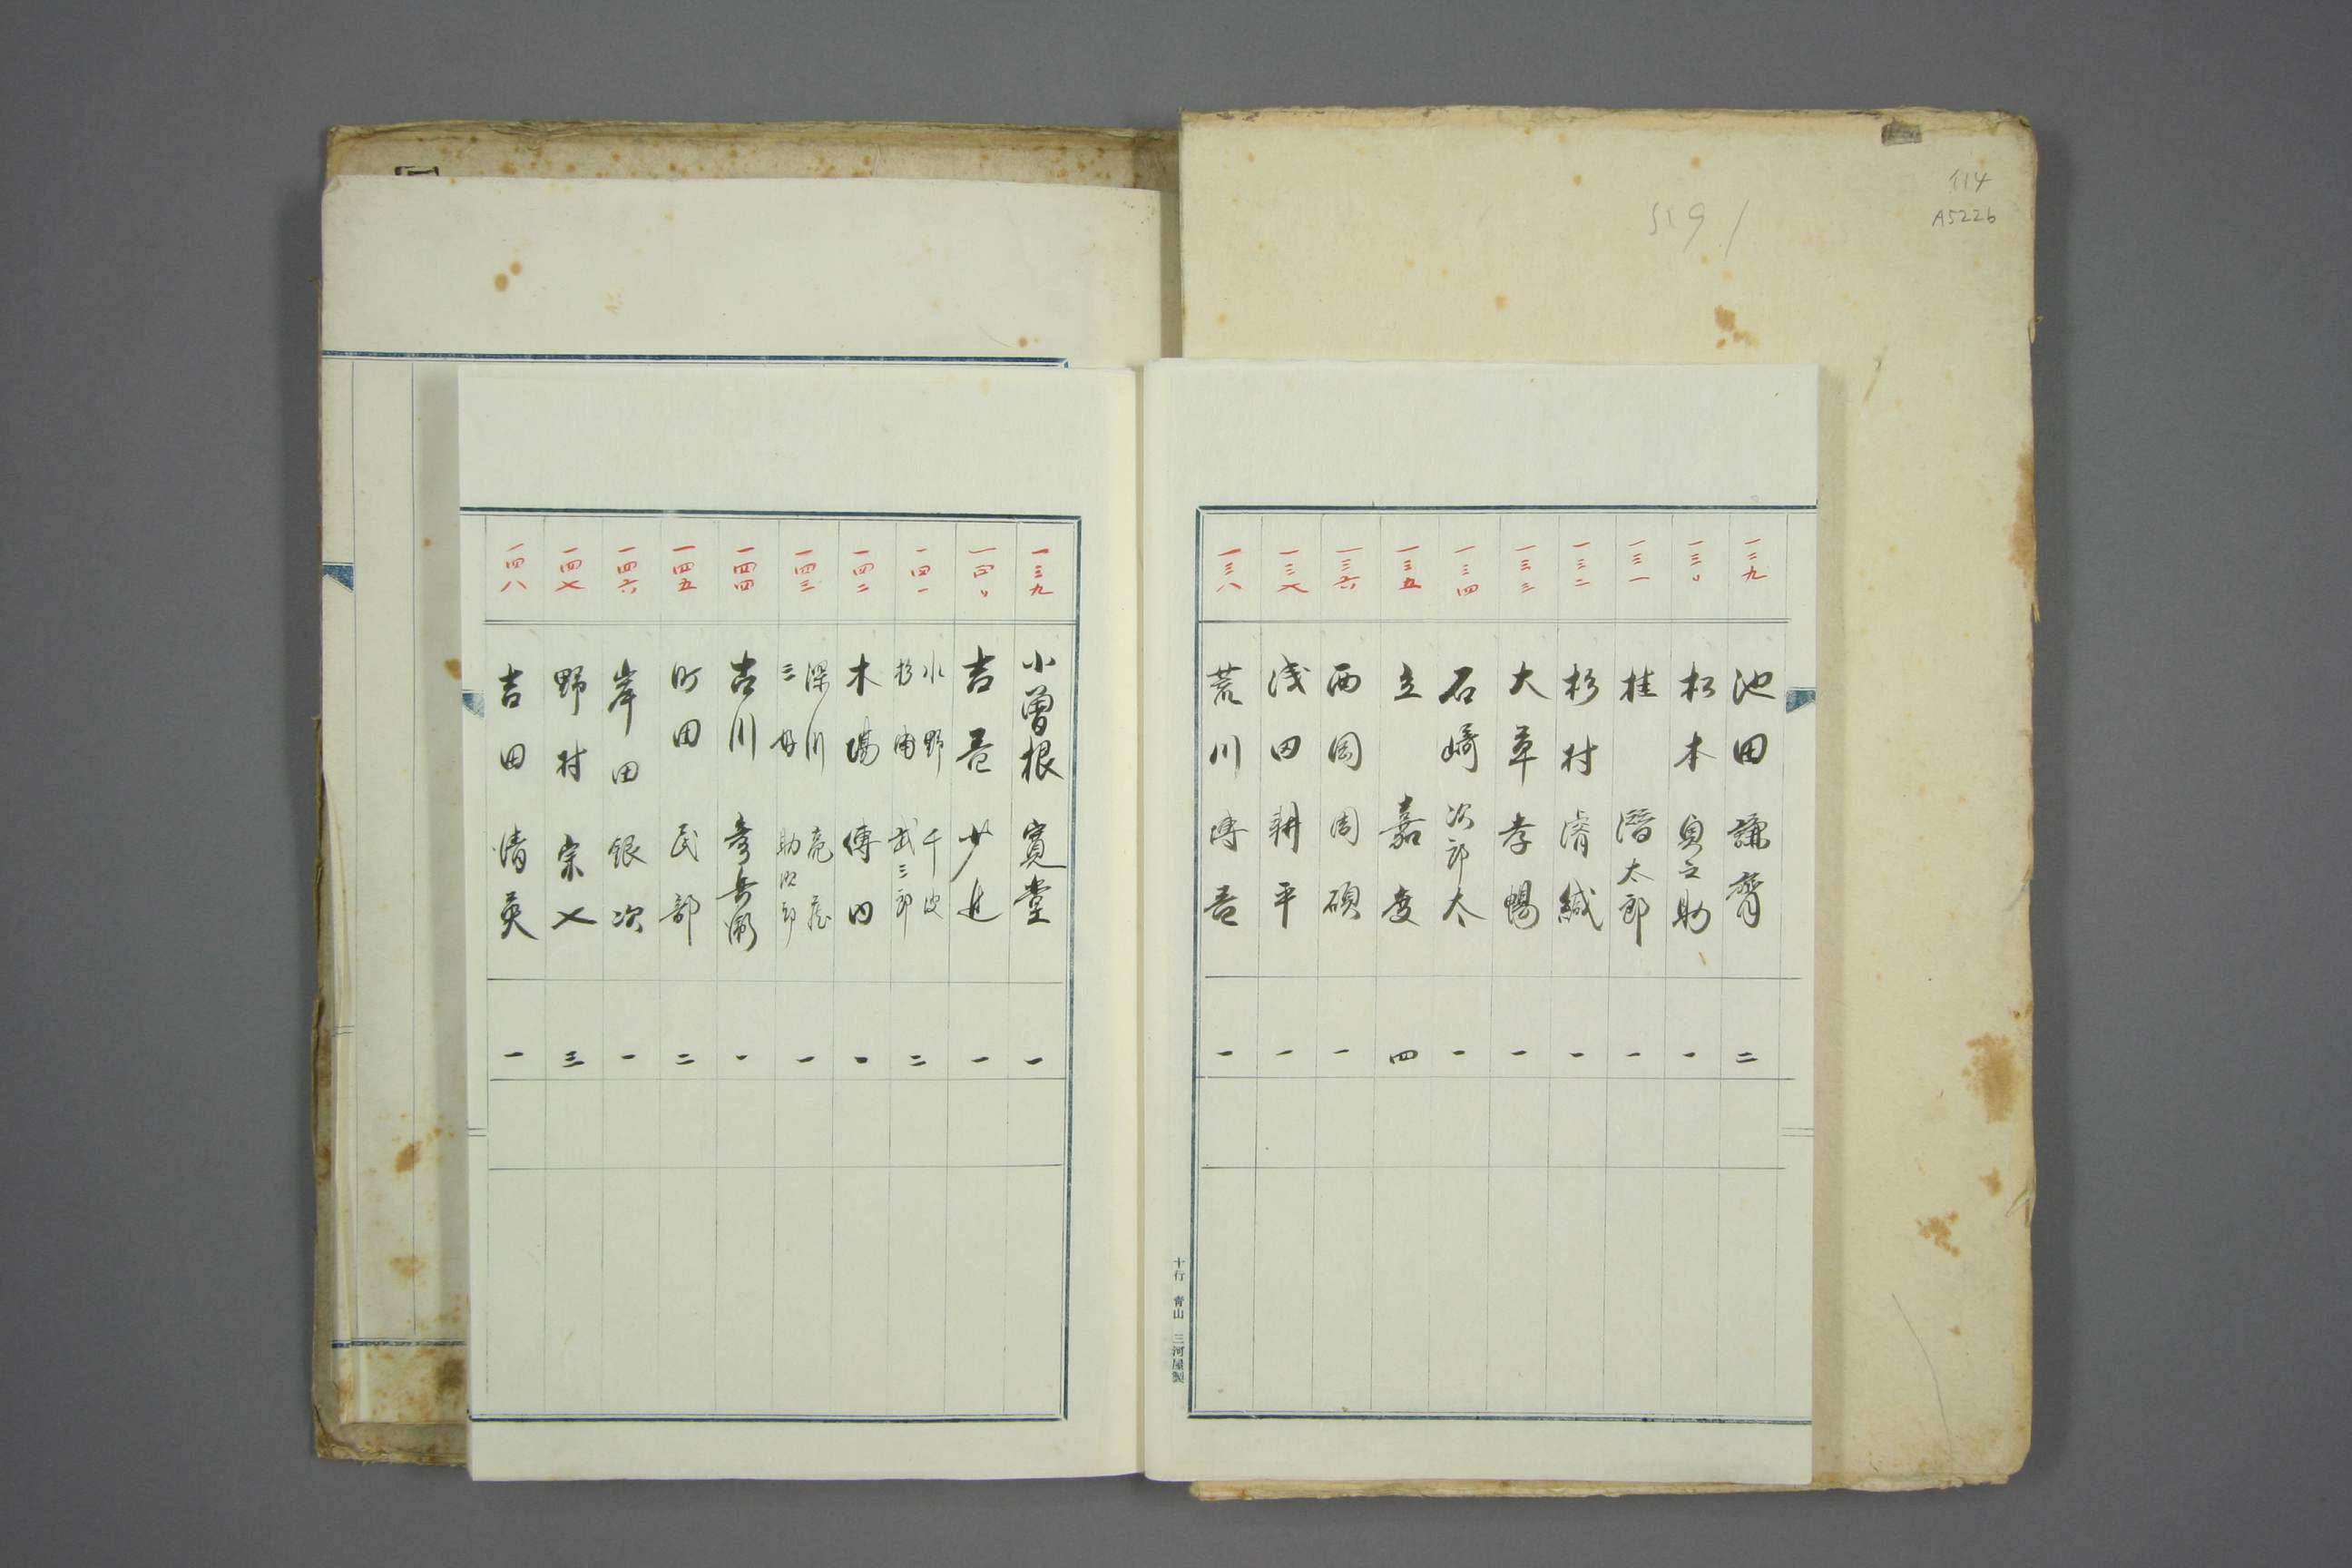 114
A5226
519
一二九 池田謙齋 二
一三〇 松本貞之助 一
一三一 桂潛太郎 一
一三二 杉村濬緘 一
一三三 大草孝暢 一
一三四 石﨑次郎太 一
一三五 立嘉度 四
一三六 西岡周碩 一
一三七 浅田耕平 一
一三八 荒川博吾 一
十行 青山 三河屋製
一三九 小曽根寛堂 一
一四〇 吉邑少進 一
一四一 水野千波 杉浦武三郎 二
一四二 木場傳内 一
一四三 深川亮蔵 三好助四郎 一
一四四 古川参兵衛 一
一四五 町田民部 二
一四六 岸田銀次 一
一四七 野村宗七 三
一四八 吉田清英 一